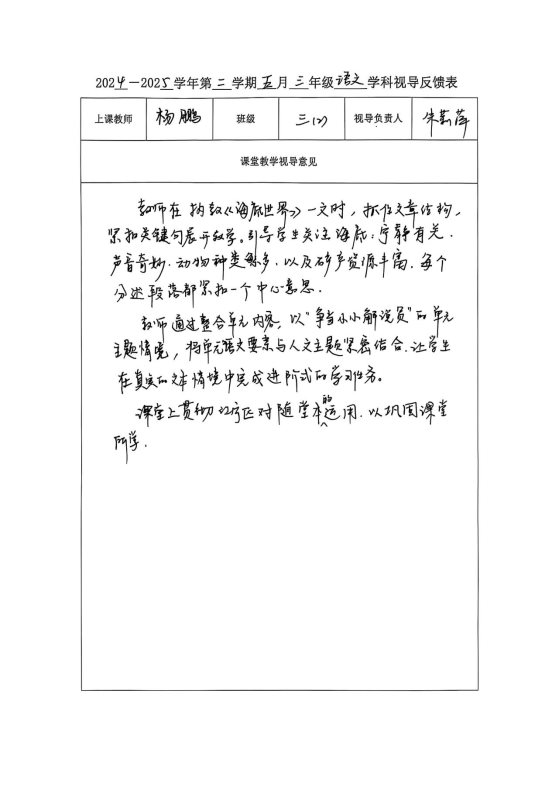 2024－2025学年第二学期五月三年级语文学科视导反馈表
上课教师 杨鹏 班级 三(2) 视导负责人 朱莉萍
课堂教学视导意见
教师在执教《海底世界》一文时，抓住文章结构，
紧扣关键句展开教学。引导学生关注海底：宁静有光、
声音奇妙、动物种类繁多，以及矿产资源丰富，每个
分述段落都紧扣一个中心意思.
教师通过整合单元内容，以“争当小小解说员”的单元
主题情境，将单元语文要素与人文主题紧密结合.让学生
在真实的文本情境中完成进阶式的学习任务。
课堂上贯彻江宁区对随堂本的运用，以巩固课堂
所学.